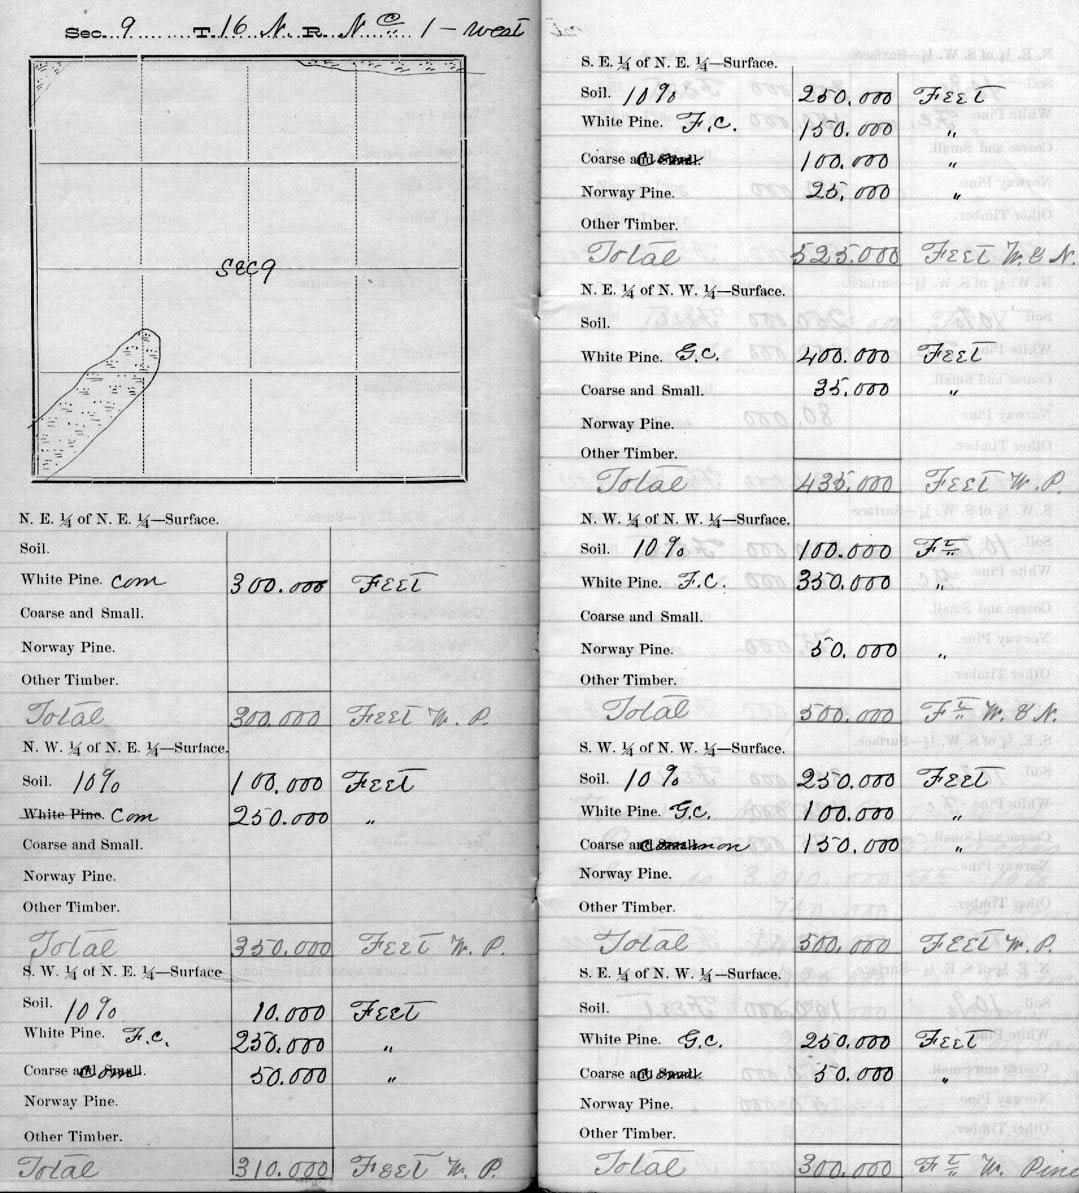 Sec. 9 T. 16 N. R. No 1 - West
SEC 9
N. E. ¼ of N. E. ¼—Surface.
Soil.
White Pine. Com 300.000 FEET
Coarse and Small.
Norway Pine.
Other Timber.
Total 300.000 FEET W. P.
N. W. ¼ of N. E. ¼—Surface.
Soil. 10% 100.000 FEET
White Pine. Com 250.000 "
Coarse and Small.
Norway Pine.
Other Timber.
Total 350.000 FEET W. P.
S. W. ¼ of N. E. ¼—Surface
Soil. 10% 10.000 FEET
White Pine. F.C. 250.000 "
Coarse and Small. Com 50.000 "
Norway Pine.
Other Timber.
Total 310.000 FEET W. P.
S. E. ¼ of N. E. ¼—Surface.
Soil. 10% 250.000 FEET
White Pine. F.C. 150.000 "
Coarse and Small. Com 100.000 "
Norway Pine. 25.000 "
Other Timber.
Total 525.000 FEET W. & N.
N. E. ¼ of N. W. ¼—Surface.
Soil.
White Pine. G.C. 400.000 FEET
Coarse and Small. 35.000 "
Norway Pine.
Other Timber.
Total 435.000 FEET W. P.
N. W. ¼ of N. W. ¼—Surface.
Soil. 10% 100.000 Ft
White Pine. F.C. 350.000 "
Coarse and Small.
Norway Pine. 50.000 "
Other Timber.
Total 500.000 Ft W. & N.
S. W. ¼ of N. W. ¼—Surface.
Soil. 10% 250.000 FEET
White Pine. G.C. 100.000 "
Coarse and Small. Common 150.000 "
Norway Pine.
Other Timber.
Total 500.000 FEET W. P.
S. E. ¼ of N. W. ¼—Surface.
Soil.
White Pine. G.C. 250.000 FEET
Coarse and Small. Com 50.000 "
Norway Pine.
Other Timber.
Total 300.000 Ft W. Pine